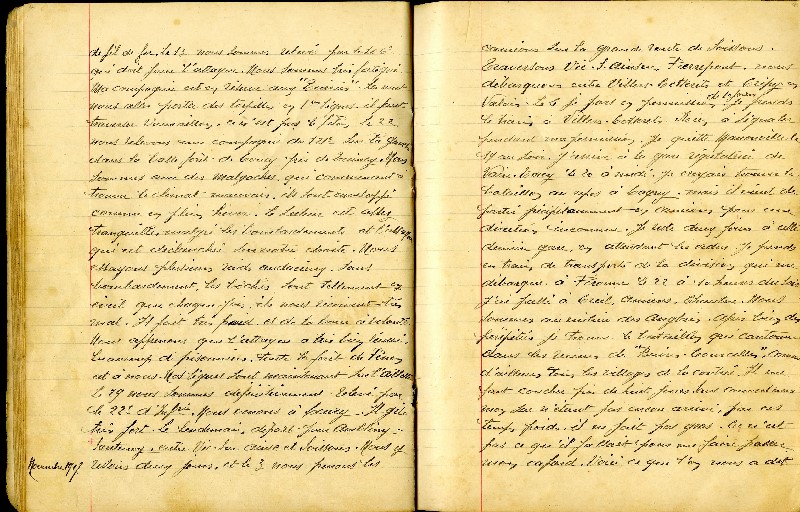 de fil de fer. le 13 nous sommes relevé par le
qui doit faire l'attaque. Nous sommes très fatigué.
Ma compagnie est en réserve aux
nous allons porter des torpilles en 1ère lignes. il faut
traverser ce n'est pas le filon. le 22
nous relevons une compagnie du sur la
dans la basse forêt de Coucy près de Nous
sommes avec des malgaches, qui commencent à
trouver le climat mauvais. ils sont enveloppé
comme en plein hiver. le secteur est assez
tranquille, malgré les bombardements et l'
qui est déclenchée sur notre droite. Nous
essayons plusieurs raids audacieux. Sans
bombardement, les boches sont tellement en
éveil que chaque fois, ils nous reçoivent très
mal. Il fait très froid, et de la boue à volonté.
Nous apprenons que l'attaque a très bien réussi.
beaucoup de prisonniers. toute la forêt de
est à nous. Nos lignes sont maintenant sur l'ailette
le 29 nous sommes définitivement relevé par
le 22e d'Infrie. Nous venons à Il gèle
très fort. le lendemain, départ pour
entre Vic-sur-aisne et Soissons. Nous y
restons deux jours, et le 3 nous prenons les
Novembre 1917
camions sur la grande route de Soissons.
Traversons Vic. S. nous
débarquons entre Villers-Cotterets et Crépy en
Valois. Le 6 je pars en permission de 10 jours. Je prends
le train à Villers-Cotterets. Rien à signaler
pendant ma permission. Je quitte le
19 au soir. J'arrive à la gare régulatrice de
le 20 à midi. Je croyais trouver le
bataillon au repos à mais il vient de
partir précipitamment en camions pour une
direction inconnue. Je reste deux jours à cette
dernière gare, en attendant les ordres. Je prends
un train de transports de la division qui me
débarque à le 22 à 10 heures du soir
J'ai passé à Creil, Amiens. Nous
sommes au milieu des Anglais. Après bien des
péripéties je trouve le bataillon qui cantonne
dans des ruines de comme
d'ailleurs tous les villages de la contrée. Il me
faut coucher près de huit jours sans couvertures
mon sac n'étant pas encore arrivé. par ces
temps froids, il ne fait pas gras. Ce n'est
pas ce qu'il fallait pour me faire passer
mon cafard. Voici ce que l'on nous a dit